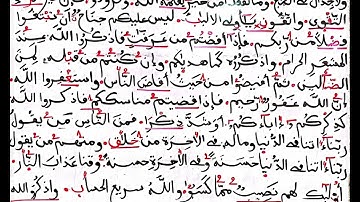 ولا جدال في الحج
التقوى واتقون يأولي الالبب ليس عليكم جناح ان تبتغوا
فضلا من ربكم فإذا أفضتم من عرفت فاذكروا الله عند
المشعر الحرام واذكروه كما هديكم وإن كنتم من قبله لمن
الضالين ثم أفيضوا من حيث أفاض الناس واستغفروا الله
إن الله غفور رحيم فإذا قضيتم مناسككم فاذكروا الله
كذكركم ءاباءكم أو أشد ذكرا فمن الناس من يقول
ربنا ءاتنا في الدنيا وماله في الاخرة من خلق ومنهم من يقول
ربنا ءاتنا في الدنيا حسنة وفي الاخرة حسنة وقنا عذاب النار
أوليك لهم نصيب مما كسبوا والله سريع الحساب واذكروا الله